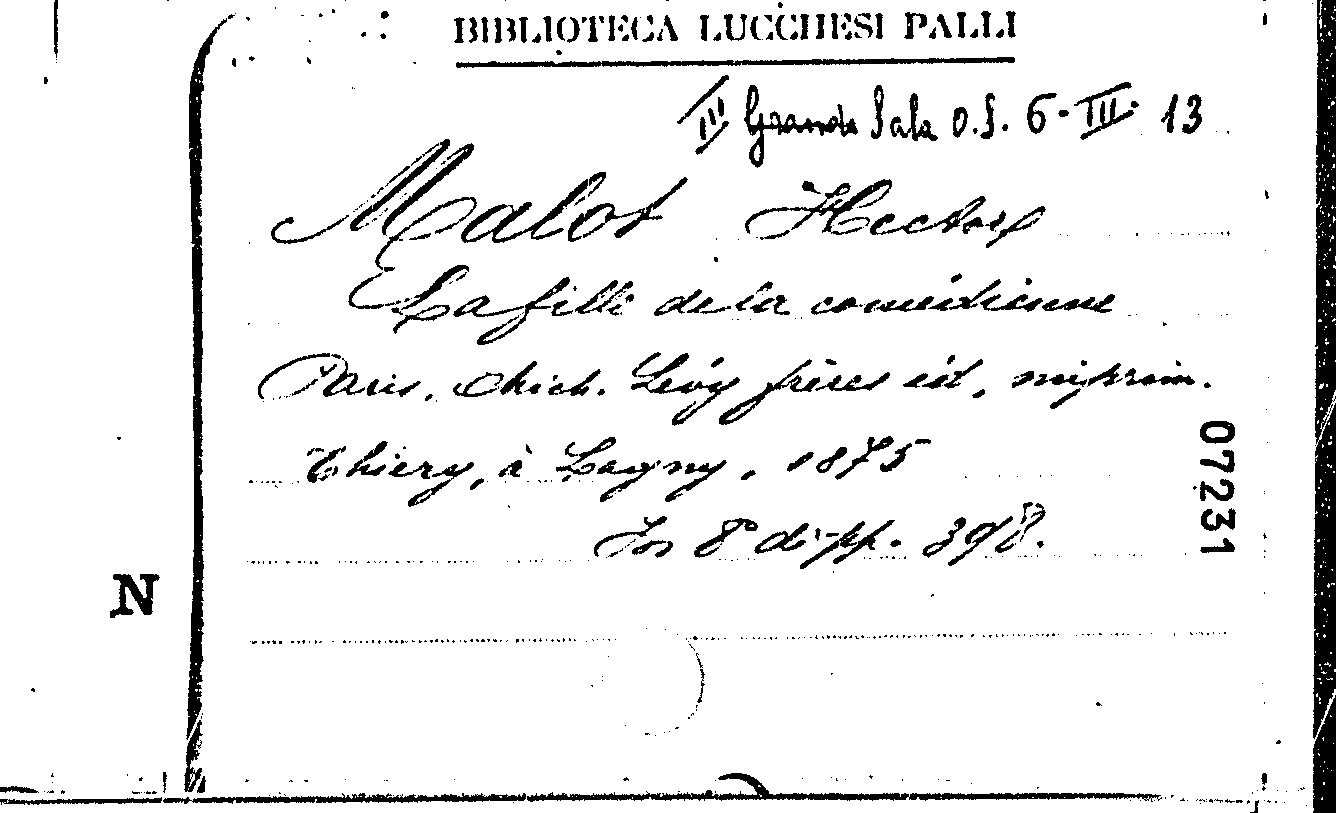 BIBLIOTECA LUCCHESI PALLI
III Grande Sala O.S. 6-III-13
Malot Hector
La fille de la comédienne
Paris, Mich. Lévy frères éd,
Thiery, à Lagny, 1875
In 8° di pp. 398.
07231
N